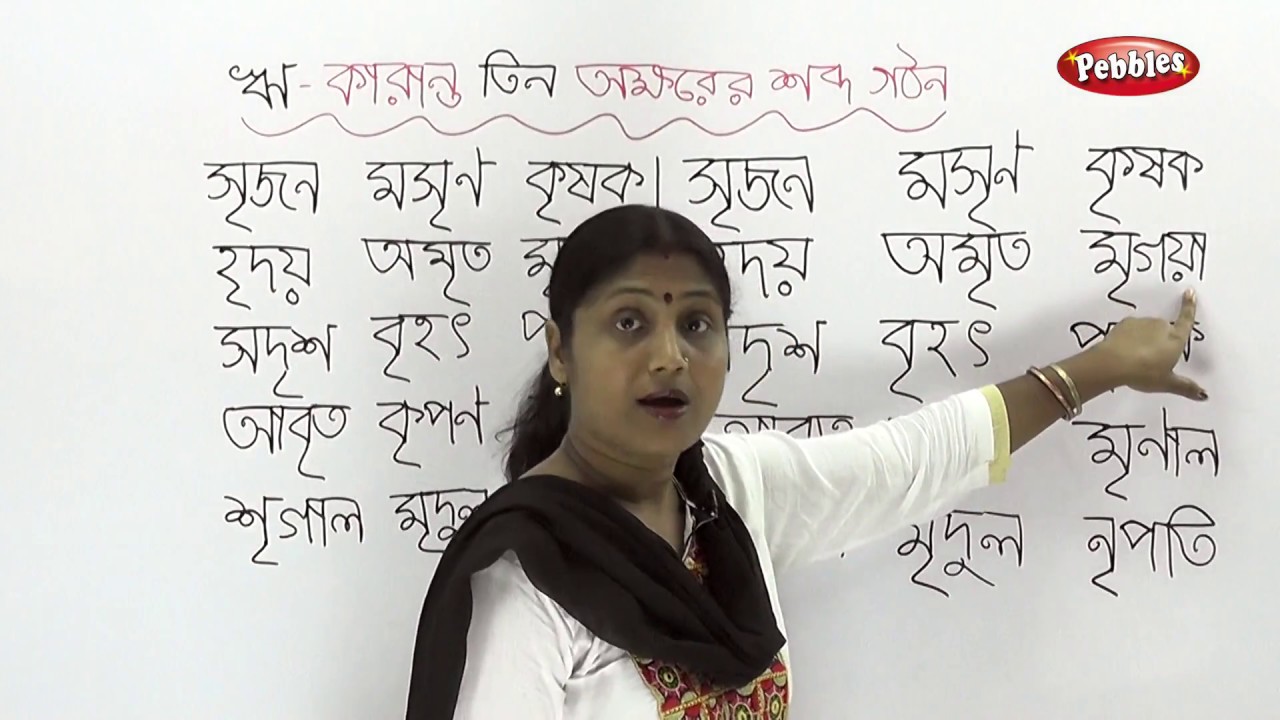 Pebbles
ঋ - কারান্ত তিন অক্ষরের শব্দ গঠন
সৃজন মসৃণ কৃষক | সৃজন মসৃণ কৃষক
হৃদয় অমৃত অমৃত মৃগয়া
সদৃশ বৃহৎ বৃহৎ
আবৃত কৃপণ মৃণাল
শৃগাল মৃদুল মৃদুল নৃপতি